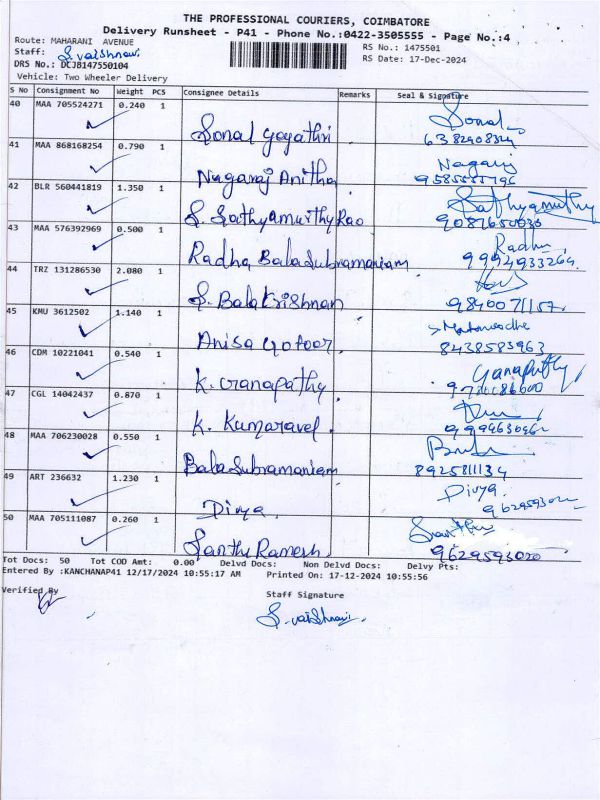 THE PROFESSIONAL COURIERS, COIMBATORE
Delivery Runsheet - P41 - Phone No.:0422-3505555 - Page No.:4
Route: MAHARANI AVENUE
RS No.: 1475501
Staff: S. vaishnavi
RS Date: 17-Dec-2024
DRS No.: DCJ8147550104
Vehicle: Two Wheeler Delivery
S No Consignment No Weight PCS Consignee Details Remarks Seal & Signature
40 MAA 705524271 0.240 1 Sonal Gayathri Sonal
41 MAA 868168254 0.790 1 Nagaraj Anitha Nagaraj
42 BLR 560441819 1.350 1 S. Sathyamurthy Rao Sathyamurthy
43 MAA 576392969 0.500 1 Radha Balasubramaniam Radha
44 TRZ 131286530 2.080 1 S. Balakrishnan 9840071157
45 KMU 3612502 1.140 1 Anisa Gofoor 8438583963
46 CDM 10221041 0.540 1 K. Ganapathy Ganapathy
47 CGL 14042437 0.870 1 K. Kumaravel
48 MAA 706230028 0.550 1 Balasubramaniam 8925811134
49 ART 236632 1.230 1 Divya Divya
50 MAA 705111087 0.260 1 Santhi Ramesh 9629593020
Tot Docs: 50 Tot COD Amt: 0.00 Delvd Docs: Non Delvd Docs: Delvy Pts:
Entered By :KANCHANAP41 12/17/2024 10:55:17 AM Printed On: 17-12-2024 10:55:56
Verified By
Staff Signature
S. vaishnavi